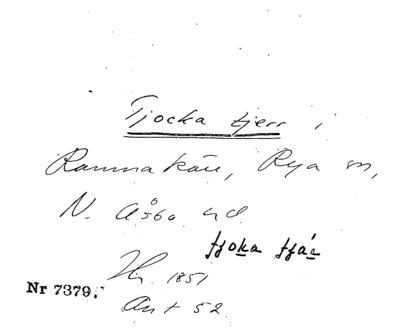 Tjocka tjerr i
Ramnakärr, Rya sn,
N. Åsbo hd
tjoka tjär
1851
Nr 7379.
Ant 52